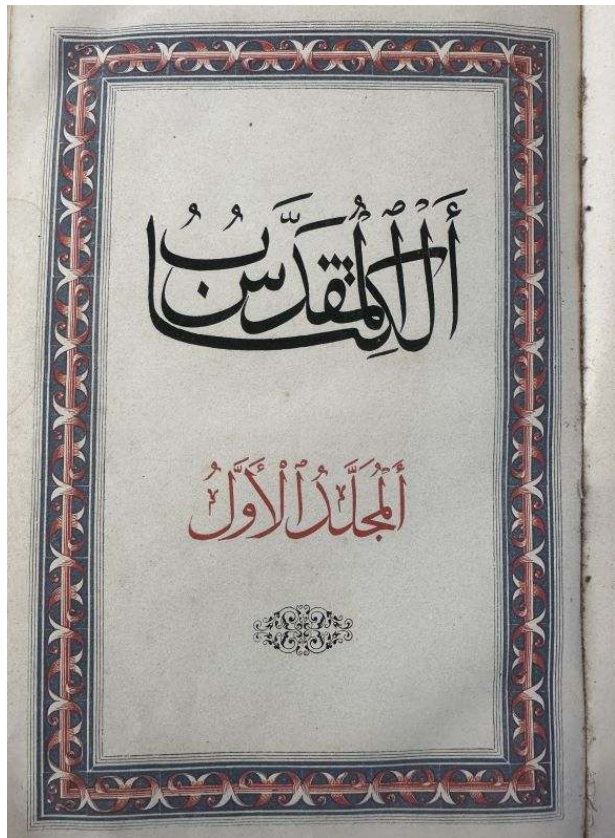 أَلْكِتَابُ ٱلْمُقَدَّسُ
أَلْمُجَلَّدُ ٱلْأَوَّلُ